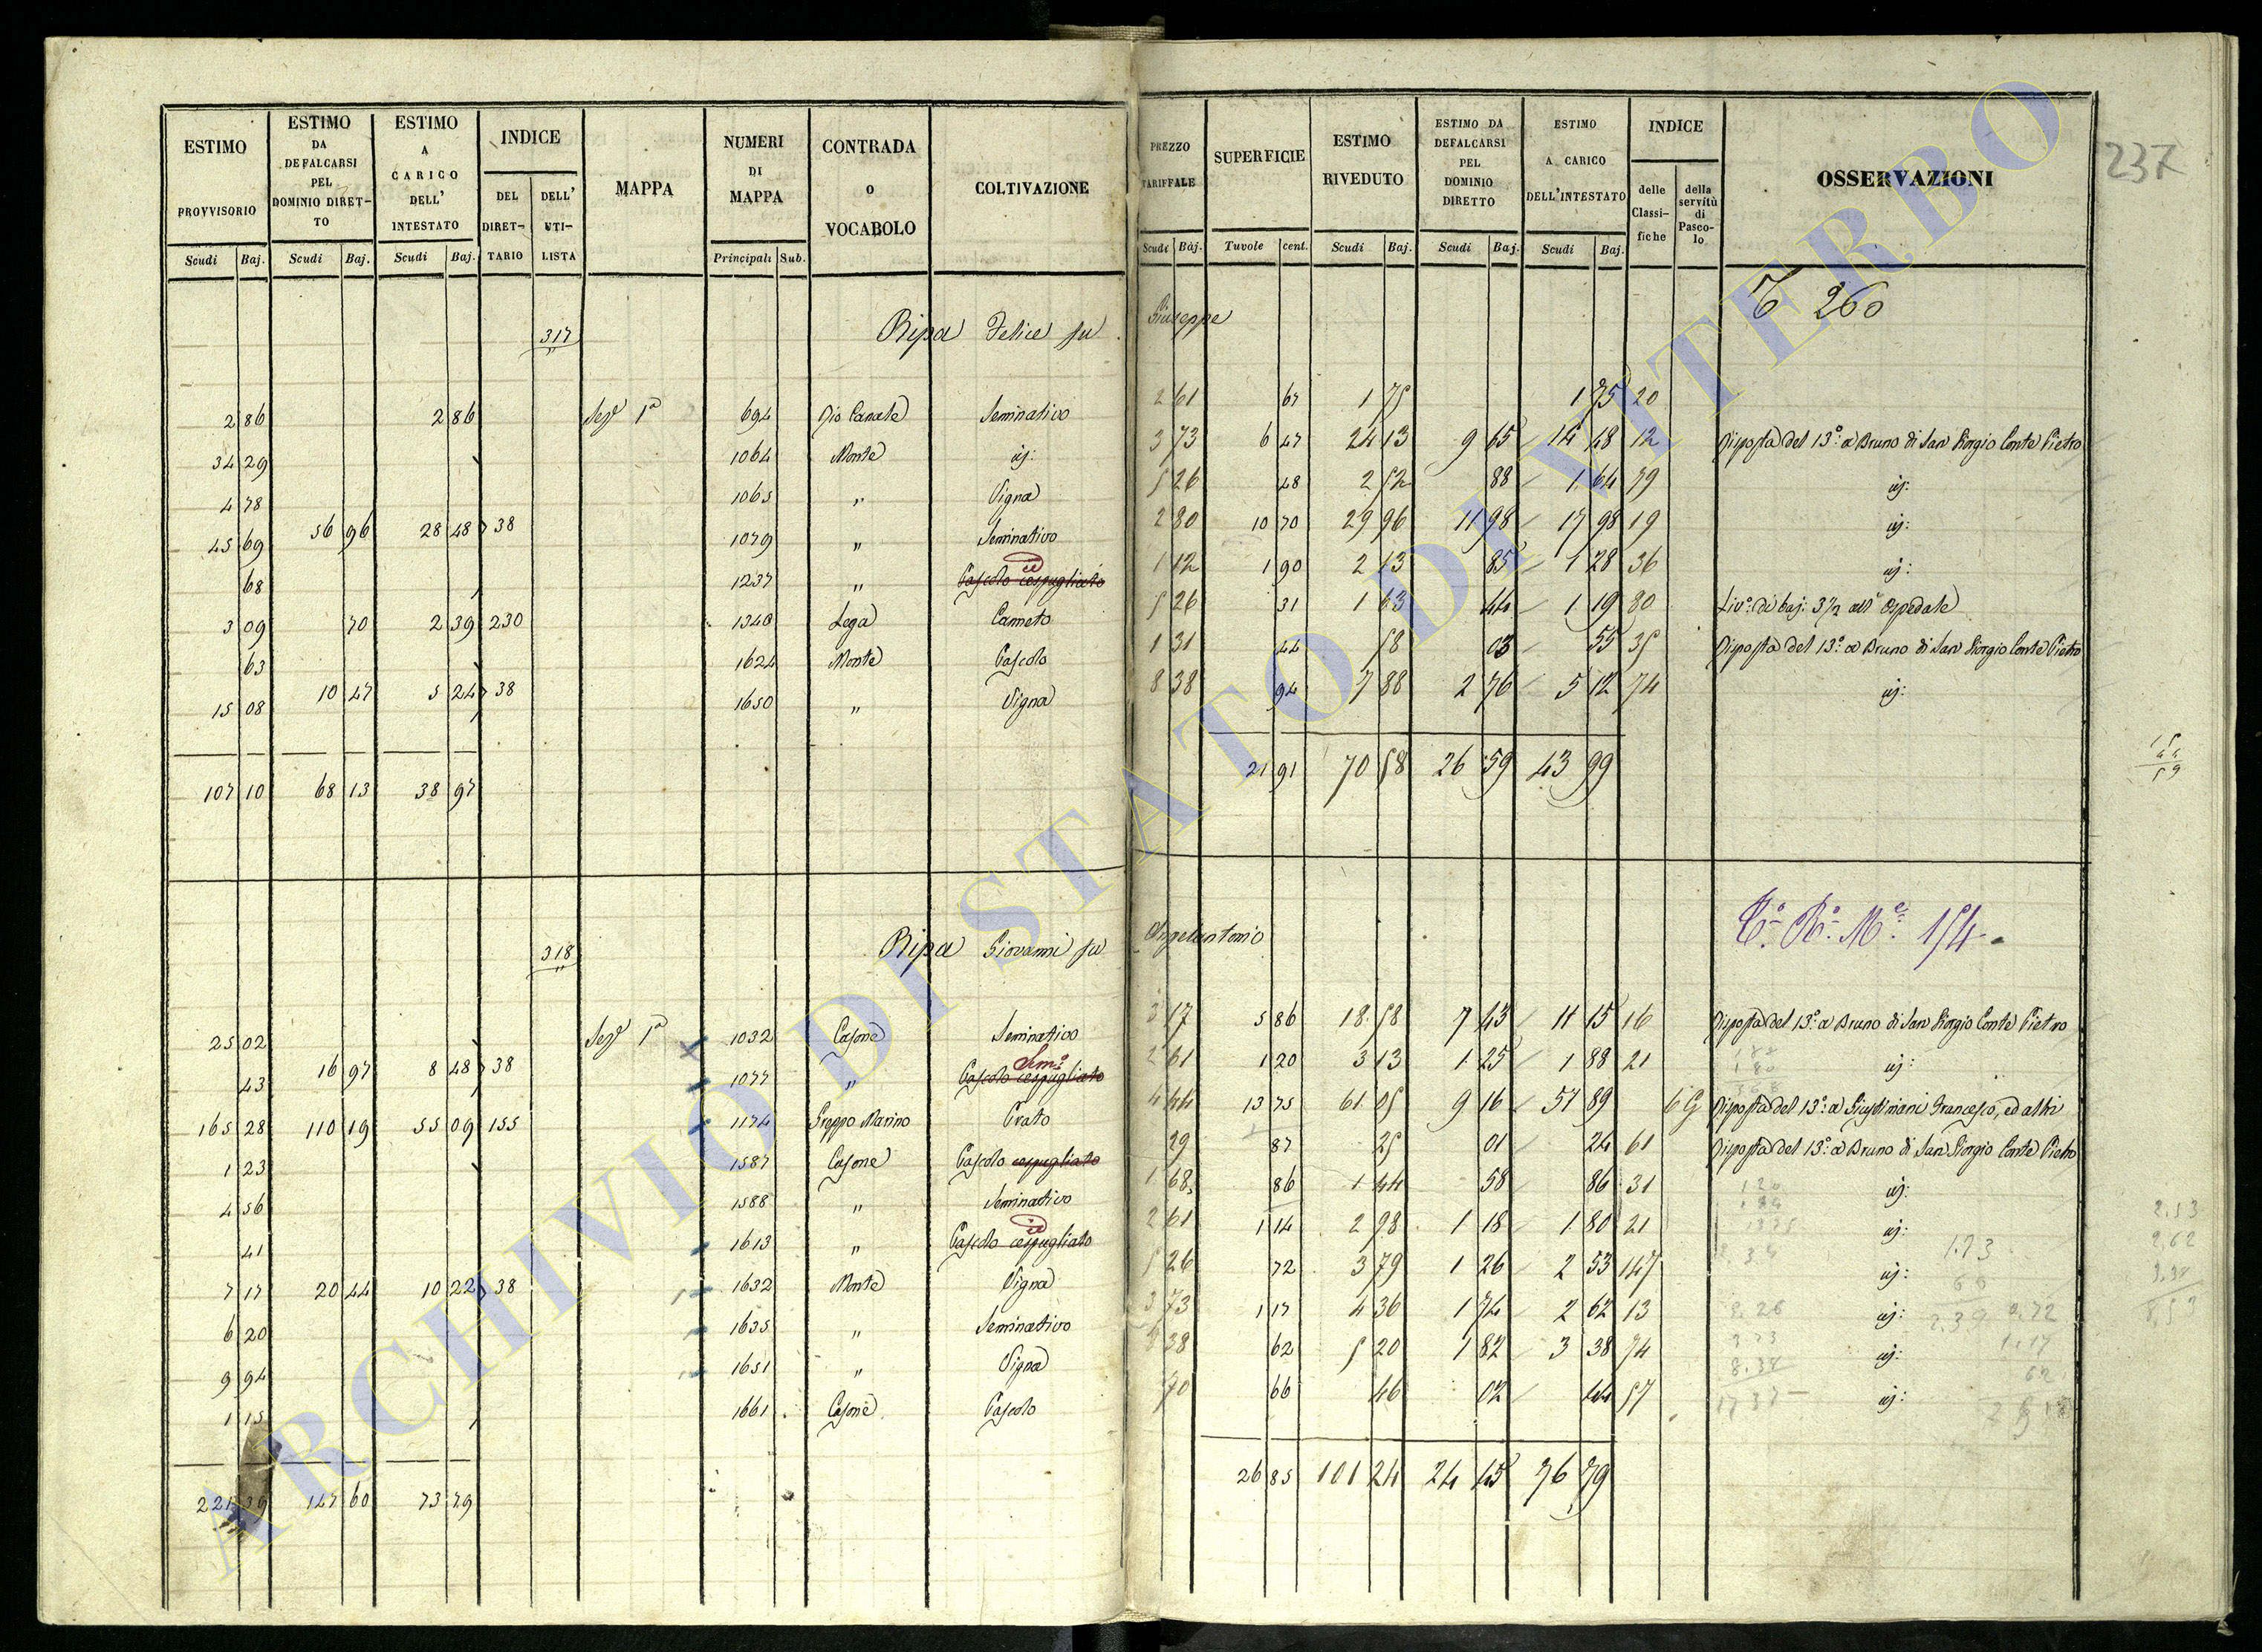 237
ESTIMO PROVVISORIO Scudi Baj.
ESTIMO DA DEFALCARSI PEL DOMINIO DIRETTO Scudi Baj.
ESTIMO A CARICO DELL' INTESTATO Scudi Baj.
INDICE DEL DIRETTARIO DELL' UTILISTA
MAPPA
NUMERI DI MAPPA Principali Sub.
CONTRADA O VOCABOLO
COLTIVAZIONE
PREZZO TARIFFALE Scudi Baj.
SUPERFICIE Tuvole cent.
ESTIMO RIVEDUTO Scudi Baj.
ESTIMO DA DEFALCARSI PEL DOMINIO DIRETTO Scudi Baj.
ESTIMO A CARICO DELL'INTESTATO Scudi Baj.
INDICE delle Classifiche della servitù di Pascolo
OSSERVAZIONI
317 Ripa Felice fu Giuseppe 260
2 86 2 86 Sezᵉ 1ᵃ 694 Seminativo 2 61 67 1 75 1 75 20
34 29 1064 Monte id: 3 73 6 47 24 13 9 65 14 48 12 Risposta del 13º: a Bruno di San Giorgio Conte Pietro
4 78 1065 " Vigna 5 26 48 2 52 88 1 64 79 id:
45 69 56 96 28 48 38 1079 " Seminativo 2 80 10 70 29 96 11 98 17 98 19 id:
68 1237 " Pascolo cespugliato id 1 12 1 90 2 13 85 1 28 36 id:
3 09 70 2 39 230 1340 Lega Canneto 5 26 31 1 63 44 1 19 80 Livº: di baj: 3½ all' Ospedale
63 1624 Monte Pascolo 1 31 44 58 03 55 35 Risposta del 13º: a Bruno di San Giorgio Conte Pietro
15 08 10 47 5 24 38 1650 " Vigna 8 38 94 7 88 2 76 5 12 74 id:
107 10 68 13 38 97 21 91 70 58 26 59 43 99
318 Ripa Giovanni fu Angelantonio 154
25 02 Sezᵉ 1ᵃ 1032 Casone Seminativo 3 17 5 86 18 58 7 43 11 15 16 Risposta del 13º: a Bruno di San Giorgio Conte Pietro
43 16 97 8 48 38 1077 " Pascolo cespugliato Semº 2 61 1 20 3 13 1 25 1 88 21 id:
165 28 110 19 55 09 155 1174 Greppo Marino Prato 4 44 13 75 61 05 9 16 51 89 6 G Risposta del 13º: a Giustiniani Francesco, ed altri
1 23 1587 Casone Pascolo cespugliato 29 87 25 01 24 61 Risposta del 13º: a Bruno di San Giorgio Conte Pietro
4 56 1588 " Seminativo 1 68 86 1 44 58 86 31 id:
41 1613 " Pascolo cespugliato id 2 61 1 14 2 98 1 18 1 80 21 id:
7 17 20 44 10 22 38 1632 Monte Vigna 5 26 72 3 79 1 26 2 53 147 id:
6 20 1635 " Seminativo 3 73 1 17 4 36 1 74 2 62 13 id:
9 94 1651 " Vigna 8 38 62 5 20 1 82 3 38 74 id:
1 15 1661 Casone Pascolo 70 66 46 02 44 57 id:
221 39 147 60 73 79 26 85 101 24 24 45 76 79
ARCHIVIO DI STATO DI VITERBO